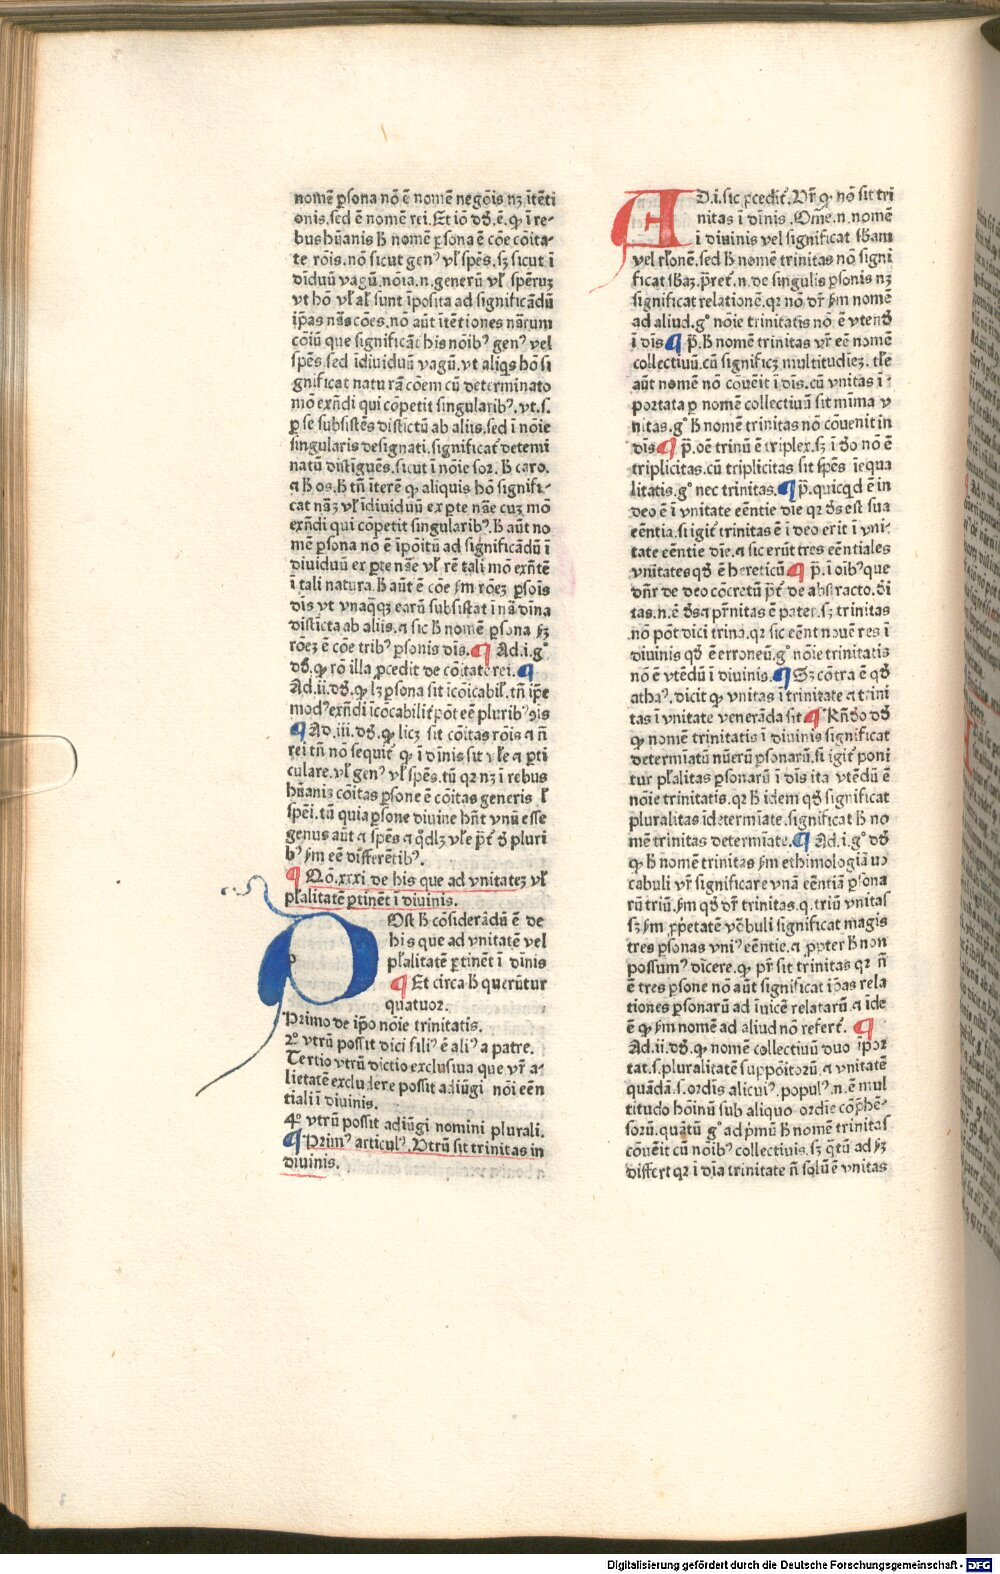 nomē ꝑsona nō ē nomē negōis nꝫ ītēti
onis.sed ē nomē rei. Et iō dō̄.ē.ꝙ ī re-
bus hūanis h̄ nomē ꝑsona ē cōe cōita-
te rōis.nō sicut genꝰ vł spēs.sꝫ sicut ī
dīduū vagū.nōia.n.generū vł spērum
vt hō vł ał sunt īposita ad significādū
ip̄as nās cōes.nō aūt ītētiones nārum
cōiū que significāt his nōibꝰ genꝰ vel
spēs.sed idiuiduū vagū.vt aliqs hō si
gnificat naturā cōem cū determinato
mō exn̄di qui cōpetit singularibꝰ.vt.s.
ꝑ se subsistēs distictū ab aliis.sed ī nōie
singularis designati.significat detemi
natū distīguēs.sicut ī nōie sor. h̄ caro.
⁊ h̄ os. h̄ tn̄ īterē ꝙ aliquis hō signifi-
cat nāꝫ vł īdiuiduū ex ꝑte nāe cuꝫ mō
exn̄di qui cōpetit singularibꝰ. h̄ aūt no
mē ꝑsona nō ē īpōitū ad significādū ī
diuiduū ex ꝑte nāe vł rē tali mō exn̄tē
ī tali natura. h̄ aūt ē cōe ẜm rōeꝫ ꝑsois
dīs vt vnaqꝗꝫ earū subsistat ī nā dina
distīcta ab aliis.⁊ sic h̄ nomē ꝑsona ẜꝫ
rōeꝫ ē cōe tribꝰ ꝑsonis dīs. ¶ Ad.i.gͦ
dō̄.ꝙ rō illa ꝓcedit de cōitate rei. ¶
Ad.ii.dō̄.ꝙ lꝫ ꝑsona sit īcōicabił.tn̄ ip̄e
modꝰ exn̄di īcōcabilit̄ pōt eē pluribꝰ ꝯis
¶ Ad.iii.dō̄.ꝙ licꝫ sit cōitas rōis ⁊ n̄
rei tn̄ nō sequit̄ ꝙ ī dīnis sit vłe ⁊ ꝑti
culare.vł genꝰ vł spēs.tū qr nꝫ ī rebus
hūanis cōitas ꝑsone ē cōitas generis ł
spēi.tū quia ꝑsone diuine hn̄t vnū esse
genus aūt ⁊ spēs ⁊ qdlꝫ vłe p̄t̄ d̄ pluri
bꝰ ẜm eē differētibꝰ.
¶ Nō.xxxi de his que ad vnitateꝫ vł
płalitatē ꝑtinēt ī diuinis.
POst h̄ cōsiderādū ē de
his que ad vnitatē vel
płalitatē ꝑtinēt ī dīnis
¶ Et circa h̄ querūtur
quatuor.
Primo de ip̄o nōie trinitatis.
2ͦ vtrū possit dici filiꝰ ē aliꝰ a patre.
Tertio vtrū dictio exclusiua que vr̄ a-
lietatē excludere possit adiūgi nōi eēn
tiali ī diuinis.
4ͦ vtrū possit adiūgi nomini plurali.
¶ Primꝰ articulꝰ. Vtrū sit trinitas in
diuinis.
AD.i.sic ꝓcedit̄. Vr̄ ꝙ nō sit tri
nitas ī dīnis. Ome.n.nomē
ī diuinis vel significat sb̄am
vel rłonē.sed h̄ nomē trinitas nō signi
ficat sb̄aꝫ.p̄ret̄.n.de singulis ꝑsonis nꝫ
significat relationē.qr nō dr̄ ẜm nomē
ad aliud.gͦ nōie trinitatis nō ē vtend̄
ī dīs ¶ p̄. h̄ nomē trinitas vr̄ eē nomē
collectiuū.cū significꝫ multitudieꝫ.tłe
aūt nomē nō cōuēit ī dīs.cū vnitas ī-
portata ꝑ nomē collectiuū sit mīma v
nitas.gͦ h̄ nomē trinitas nō cōuenit in
dīs ¶ p̄.oē trinū ē triplex.sꝫ ī dō nō ē
triplicitas.cū triplicitas sit spēs iequa
litatis.gͦ nec trinitas. ¶ p̄.quicqd ē in
deo ē ī vnitate eēntie die qr d̄s est sua
eēntia.si igit̄ trinitas ē ī deo erit ī vni-
tate eēntie dīe.⁊ sic erūt tres eēntiales
vnitates qd̄ ē hereticū ¶ p̄.ī oībꝰ que
dn̄r de deo cōcretū p̄t̄ de abstracto.d̄i
tas.n.ē d̄s ⁊ pr̄nitas ē pater.sꝫ trinitas
nō pōt dici trina.qr sic eēnt nouē res ī
diuinis qd̄ ē erroneū.gͦ nōie trinitatis
nō ē vtēdū ī diuinis. ¶ Sꝫ cōtra ē qd̄
athaꝰ.dicit ꝙ vnitas ī trinitate ⁊ trini
tas ī vnitate venerāda sit ¶ Rn̄do dō̄
ꝙ nomē trinitatis ī diuinis significat
determiatū nūerū ꝑsonarū.si igit̄ poni
tur płalitas ꝑsonarū ī dīs ita vtēdū ē
nōie trinitatis.qr h̄ idem qd̄ significat
pluralitas īdetermīate.significat h̄ no
mē trinitas determīate. ¶ Ad.i.gͦ dō̄
ꝙ h̄ nomē trinitas ẜm ethimologiā uo
cabuli vr̄ significare vnā eēntiā ꝑsona
rū triū.ẜm qd̄ dr̄ trinitas.q.triū vnitas
sꝫ ẜm ꝓpetatē vōbuli significat magis
tres ꝑsonas vniꝰ eēntie.⁊ ꝓpter h̄ non
possumꝰ dicere.ꝙ pr̄ sit trinitas qr n̄
ē tres ꝑsone nō aūt significat ip̄as rela
tiones ꝑsonarū ad īuicē relatarū.⁊ ide
ē ꝙ ẜm nomē ad aliud nō refert̄. ¶
Ad.ii.dō̄.ꝙ nomē collectiuū duo īpor
tat.s.pluralitatē suppōitorū.⁊ vnitatē
quādā.s.ordīs alicuiꝰ.populꝰ.n.ē mul
titudo hōinū sub aliquo ordīe cōp̄hē-
sorū.quātū gͦ ad p̄mū h̄ nomē trinitas
cōuēit cū nōibꝰ collectiuis.sꝫ q̄tū ad ẜꝫ
differt qr ī dīa trinitate n̄ solū ē vnitas
Digitalisierung gefördert durch die Deutsche Forschungsgemeinschaft - DFG